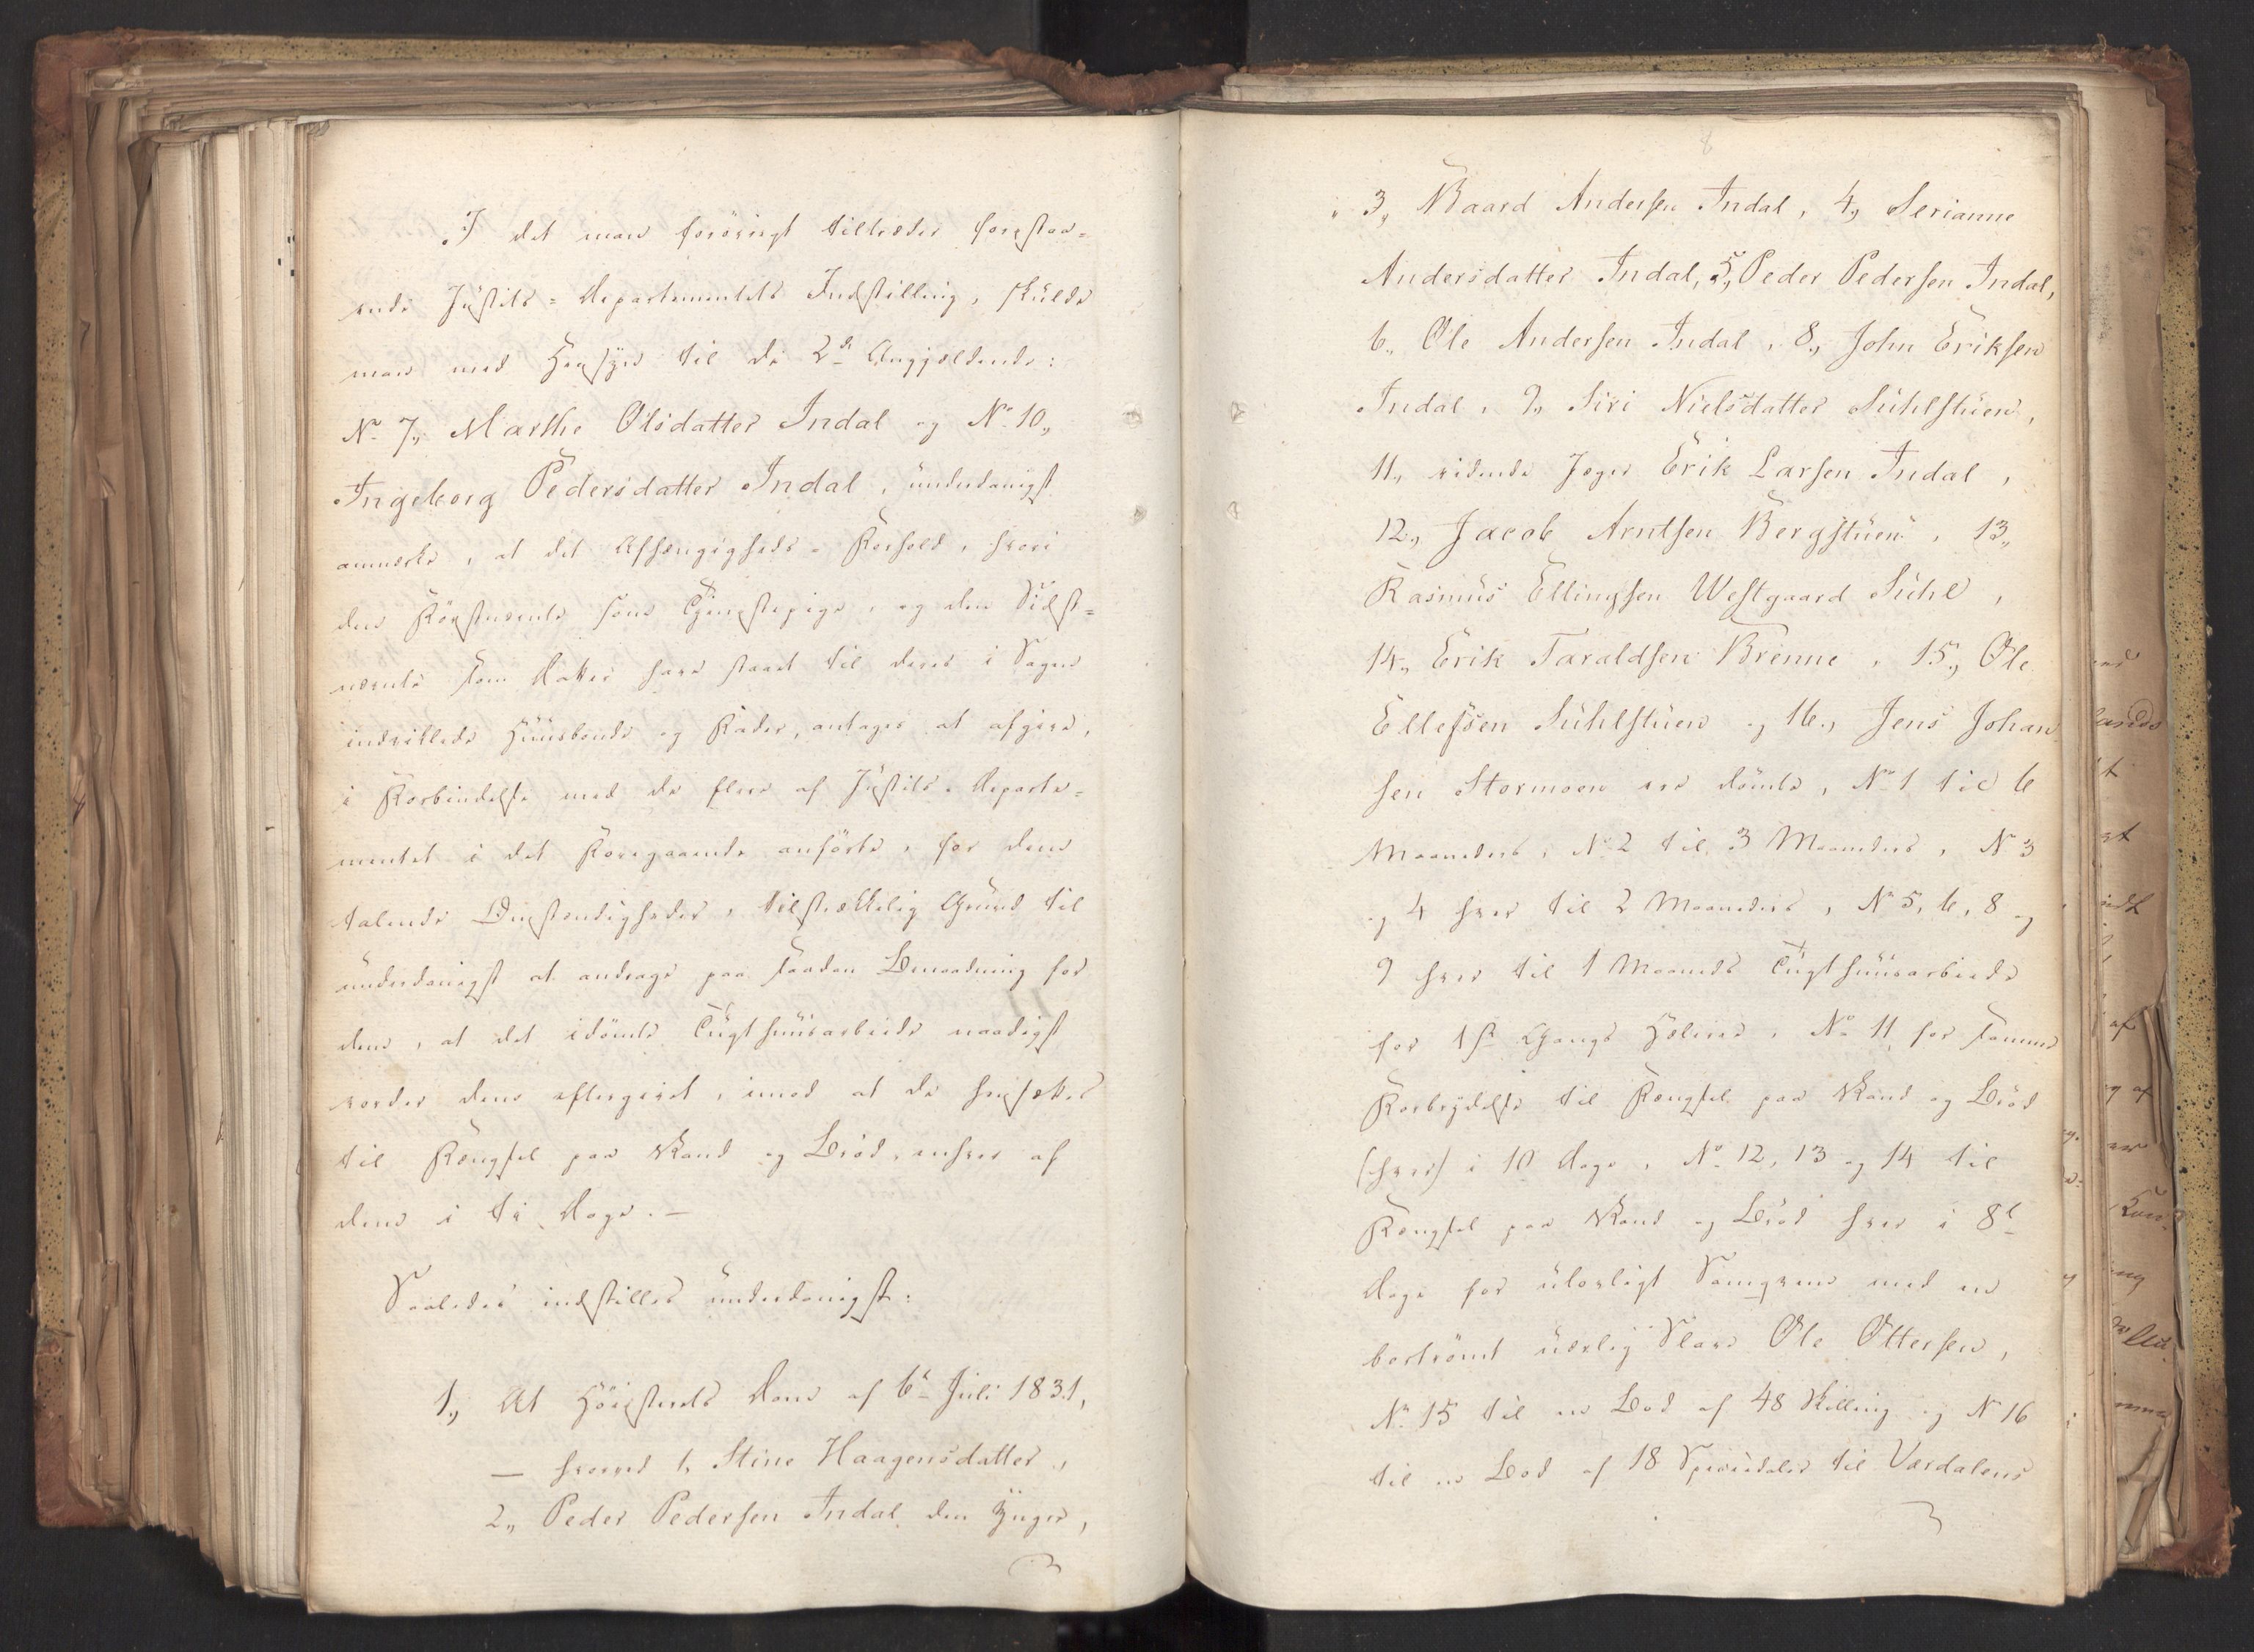 I det man forövrigt tiltræder forestaa-
ende Justits-Departementets Indstilling, skulde
man med Hensyn til de 2de Angjældende:
No 7, Marthe Olsdatter Indal og No 10,
Ingeborg Pedersdatter Indal, underdanigst
anmerke, at det Afhængigheds-Forhold, hvori
den Förstnævnte som Tjenestepige, og den Sidst-
nævnte som Datter have staaet til deres i Sagen
indviklede Huusbonde og Fader, antages at afgive,
i Forbindelse med de flere af Justits-Departe-
mentet i det Foregaaende anförte, for dem
talende Omstændigheder, tilstrækkelig Grund til
underdanigst at andrage paa saadan Benaadning for
dem, at det idömte Tugthuusarbeide naadigst
vorder dem eftergivet, imod at de hensættes
til Fængsel paa Vand og Bröd, enhver af
dem i ti Dage. —
Saaledes indstilles underdanigst:
1, At Höiesterets Dom af 6te Juli 1831,
— hvorved 1, Stine Haagensdatter,
2, Peder Pedersen Indal den Yngre,
8
3, Baard Andersen Indal, 4, Serianne
Andersdatter Indal, 5, Peder Pedersen Indal,
6, Ole Andersen Indal, 8, John Eriksen
Indal, 9, Siri Nielsdatter Suhlstuen,
11, ridende Jæger Erik Larsen Indal,
12, Jacob Arntsen Bergstuen, 13,
Rasmus Ellingsen Westgaard Suhl,
14, Erik Taraldsen Brenne, 15, Ole
Ellefsen Suhlstuen og 16, Jens Johan
sen Stormoen ere dömte, No 1 til 6
Maaneders, No 2 til 3 Maaneders, No 3
og 4 hver til 2 Maaneders, No 5, 6, 8 og
9 hver til 1 Maaneds Tugthuusarbeide
for 1ste Gangs Hæleri, No 11 for samme
Forbrydelse til Fængsel paa Vand og Bröd
(hver) i 10 Dage, No 12, 13 og 14 til
Fængsel paa Vand og Bröd hver i 8te
Dage for ulovligt Samqvem med en
bortrömt uærlig Slave Ole Ottersen,
No 15 til en Bod af 48 Skilling og No 16
til en Bod af 18 Speciedaler til Værdalens